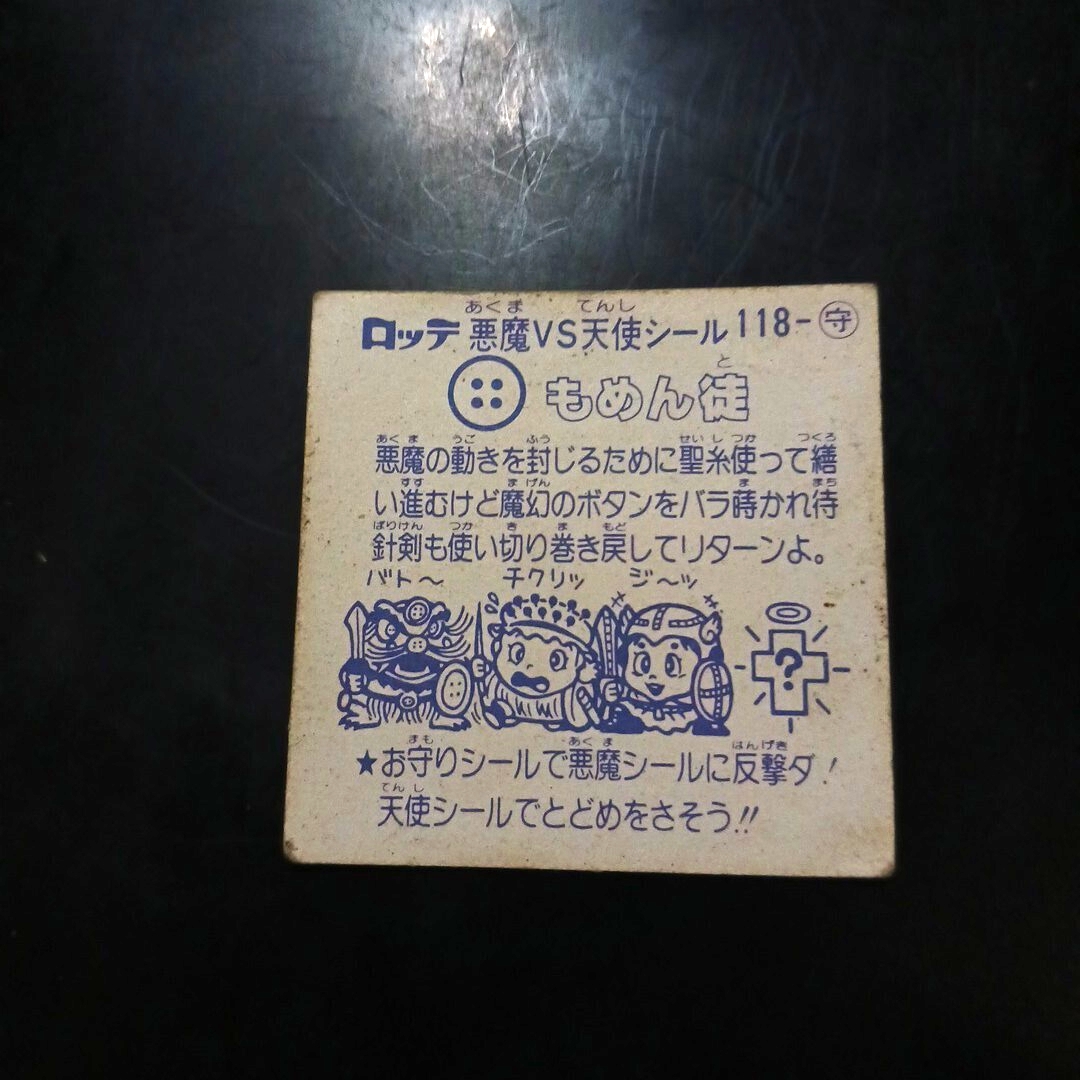 ロッテ 悪魔VS天使シール 118-守
もめん徒
悪魔の動きを封じるために聖糸使って繕
い進むけど魔幻のボタンをバラ蒔かれ待
針剣も使い切り巻き戻してリターンよ。
バト〜 チクリッ ジ〜ッ
?
★お守りシールで悪魔シールに反撃ダ!
天使シールでとどめをさそう!!